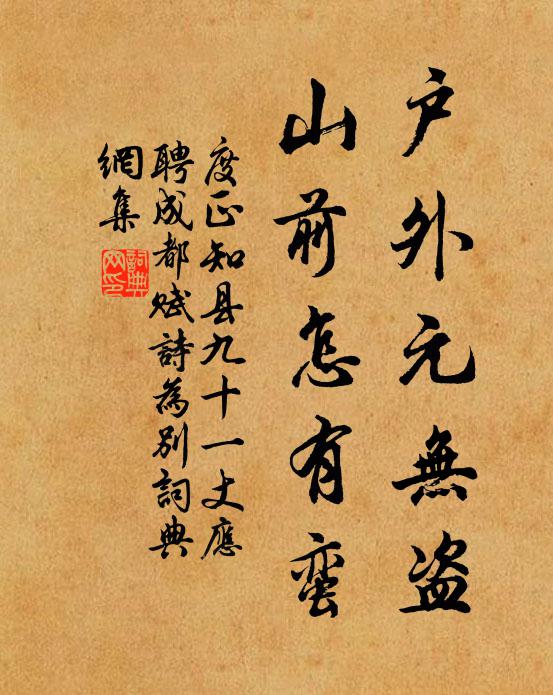 户外元無盗
山前怎有蛮
度正知县九十一丈應
聘成都赋詩為别詞典
網集
詞典
网印